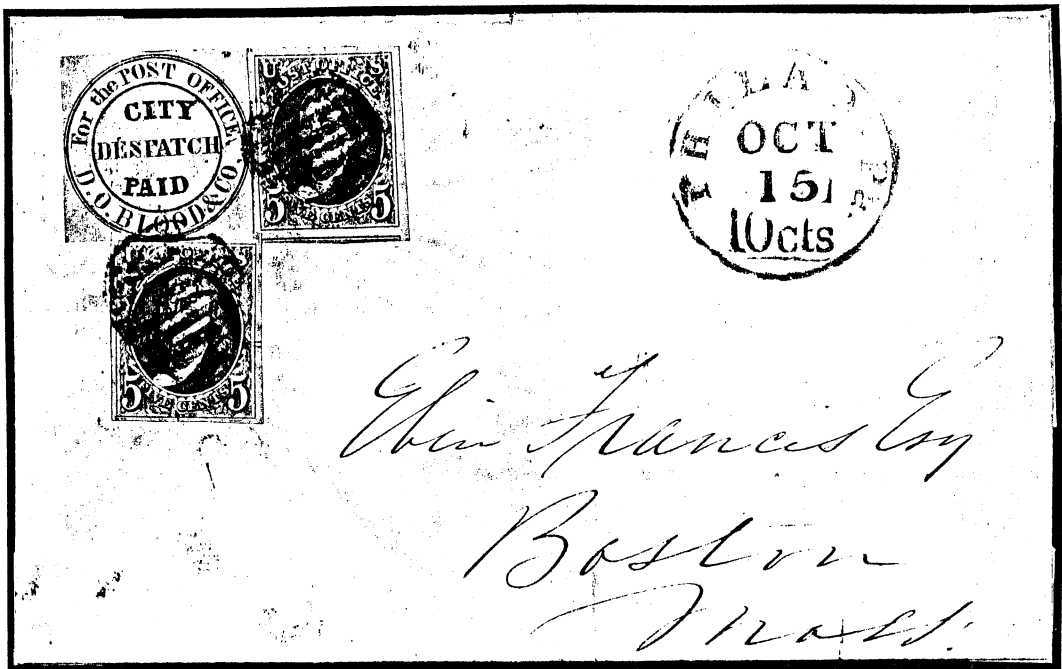 For the POST OFFICE
CITY
DESPATCH
PAID
D.O. BLOOD & CO.
U S
POST OFFICE
5 FIVE CENTS 5
5 FIVE CENTS 5
PHILADA
OCT
15
10cts
Eben Francis Esq
Boston
Mass.